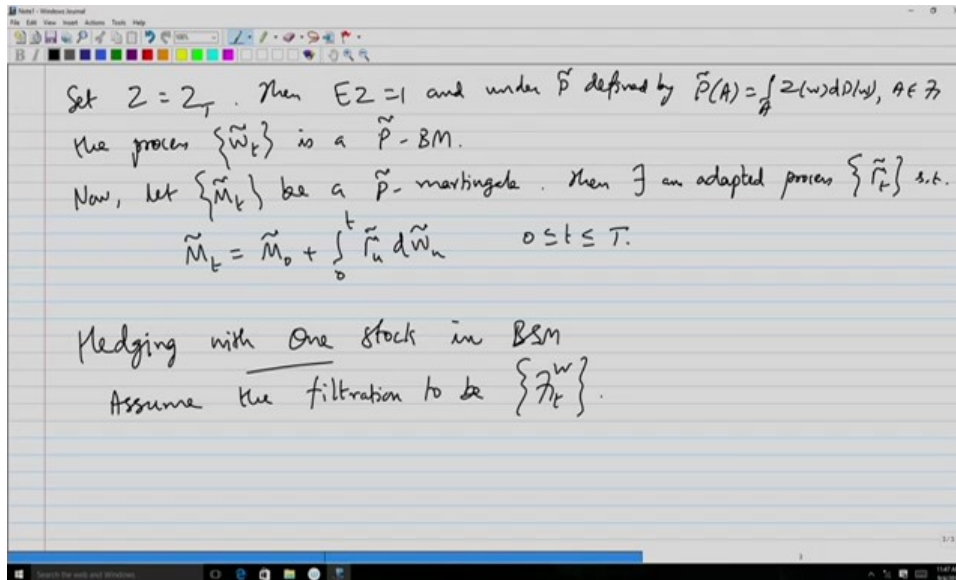 Note1 - Windows Journal
File Edit View Insert Actions Tools Help
B I
Set Z = Z_T. Then EZ=1 and under P̃ defined by P̃(A) = ∫_A Z(w)dP(w), A ∈ ℱ
the process {W̃_t} is a P̃-BM.
Now, let {M̃_t} be a P̃-martingale. Then ∃ an adapted process {Γ̃_t} s.t.
M̃_t = M̃_0 + ∫_0^t Γ̃_u dW̃_u 0 ≤ t ≤ T.
Hedging with One stock in BSM
Assume the filtration to be {ℱ_t^W}.
1/1
Search the web and Windows
11:47 AM